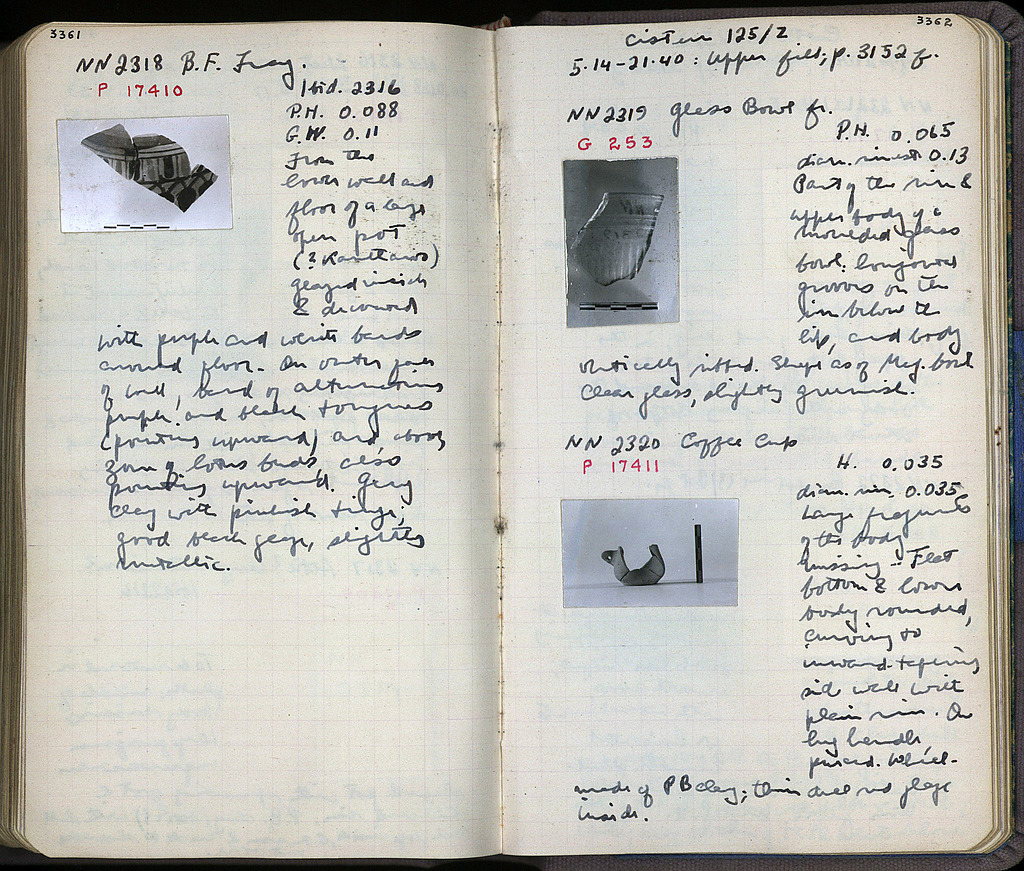 3361
NN 2318 B.F. Frag.
P 17410
Ibid. 2316
P.H. 0.088
G.W. 0.11
From the
lower wall and
floor of a large
open pot
(? Kantharos)
glazed inside
& decorated
with purple and white bands
around floor. On outer face
of wall, band of alternating
purple and black tongues
(pointing upward) and above
zone of lotus buds, also
pointing upward. Grey
clay with pinkish tinge;
good black glaze, slightly
metallic.
3362
Cistern 125/Z
5-14-21-40: Upper fill, p. 3152 f.
NN 2319 Glass Bowl fr.
G 253
P.H. 0.065
diam. rim est 0.13
Part of the rim &
upper body of a
moulded glass
bowl:
grooves on the
rim below the
lip, and body
vertically ribbed. Shape as of Meg. bowl
Clear glass, slightly greenish.
NN 2320 Coffee Cup
P 17411
H. 0.035
diam. rim. 0.035
Large fragments
of the body
missing. Flat
bottom & lower
body rounded,
curving to
inward-tapering
side wall with
plain rim. One
lug handle,
pierced. Wheel-
made of PB clay; thin dull red glaze
inside.